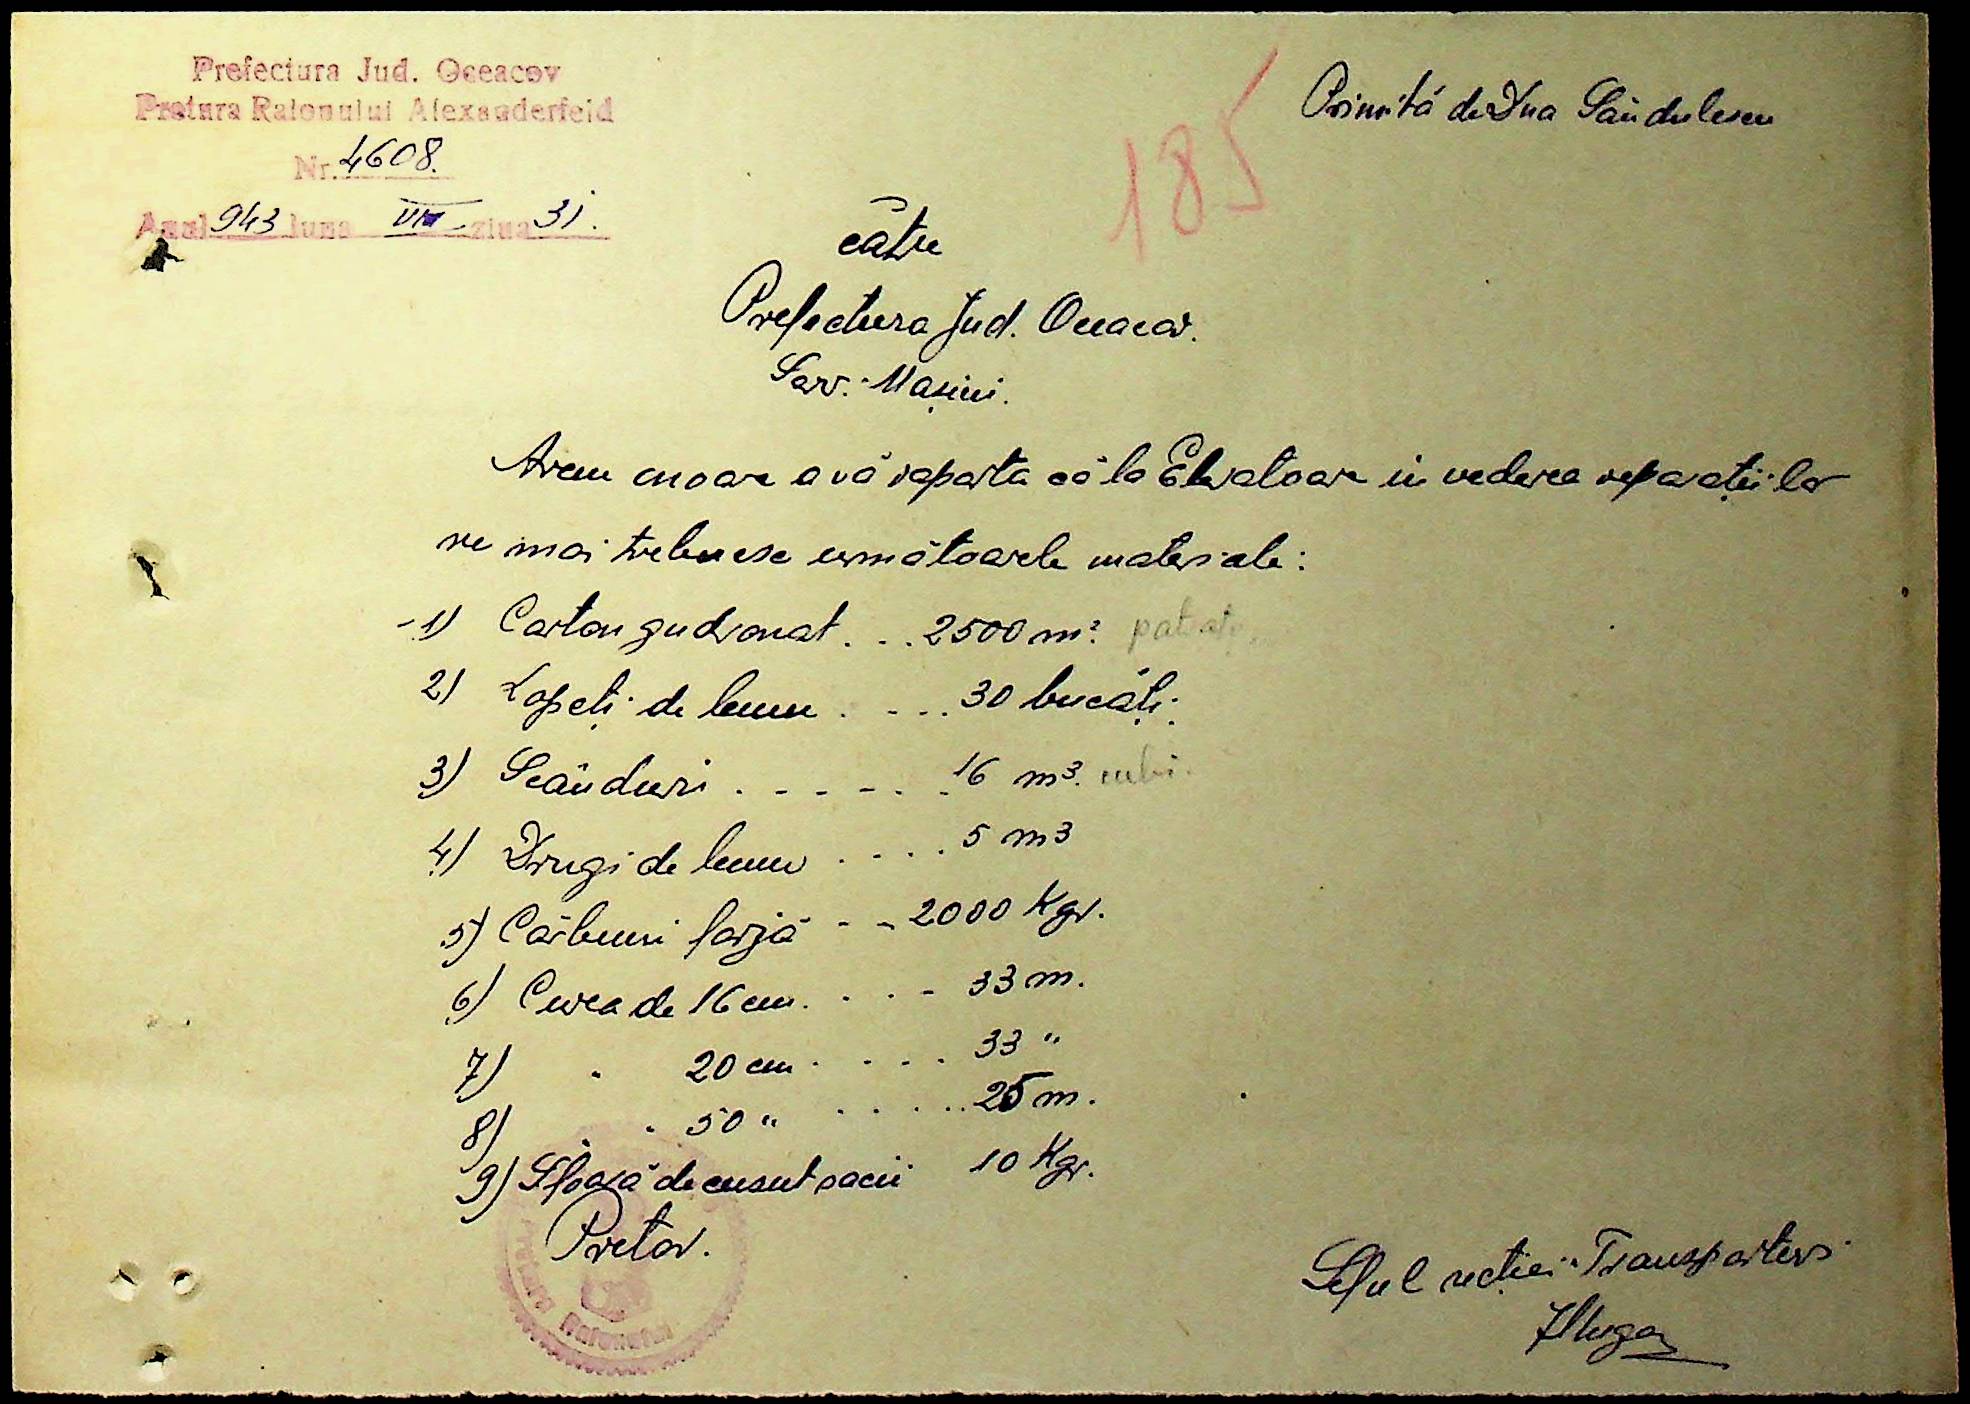 Prefectura Jud. Oceacov
Pretura Raionului Alexanderfeld
Nr. 4608.
Anul 943 luna VIII ziua 31.
Primită de Dna Săndulescu
185
către
Prefectura Jud. Oceacov.
Serv. Mașini.
Avem onoare a vă raporta că la Elevatoare în vederea reparațiilor
ne mai trebuesc următoarele materiale:
1) Carton gudronat . . . 2500 m² patrați.
2) Lopeți de lemn . . . . 30 bucăți.
3) Scânduri . . . . . . 16 m³. cubi.
4) Drugi de lemn . . . . 5 m3
5) Cărbuni forjă - - 2000 Kgr.
6) Curea de 16 cm. . . - 33 m.
7) " 20 cm . . . . 33 "
8) " " 50 " . . . . . 25 m.
9) Sfoară de cusut sacii 10 Kgr.
Pretor.
Raionului
Șeful secției Transporturi